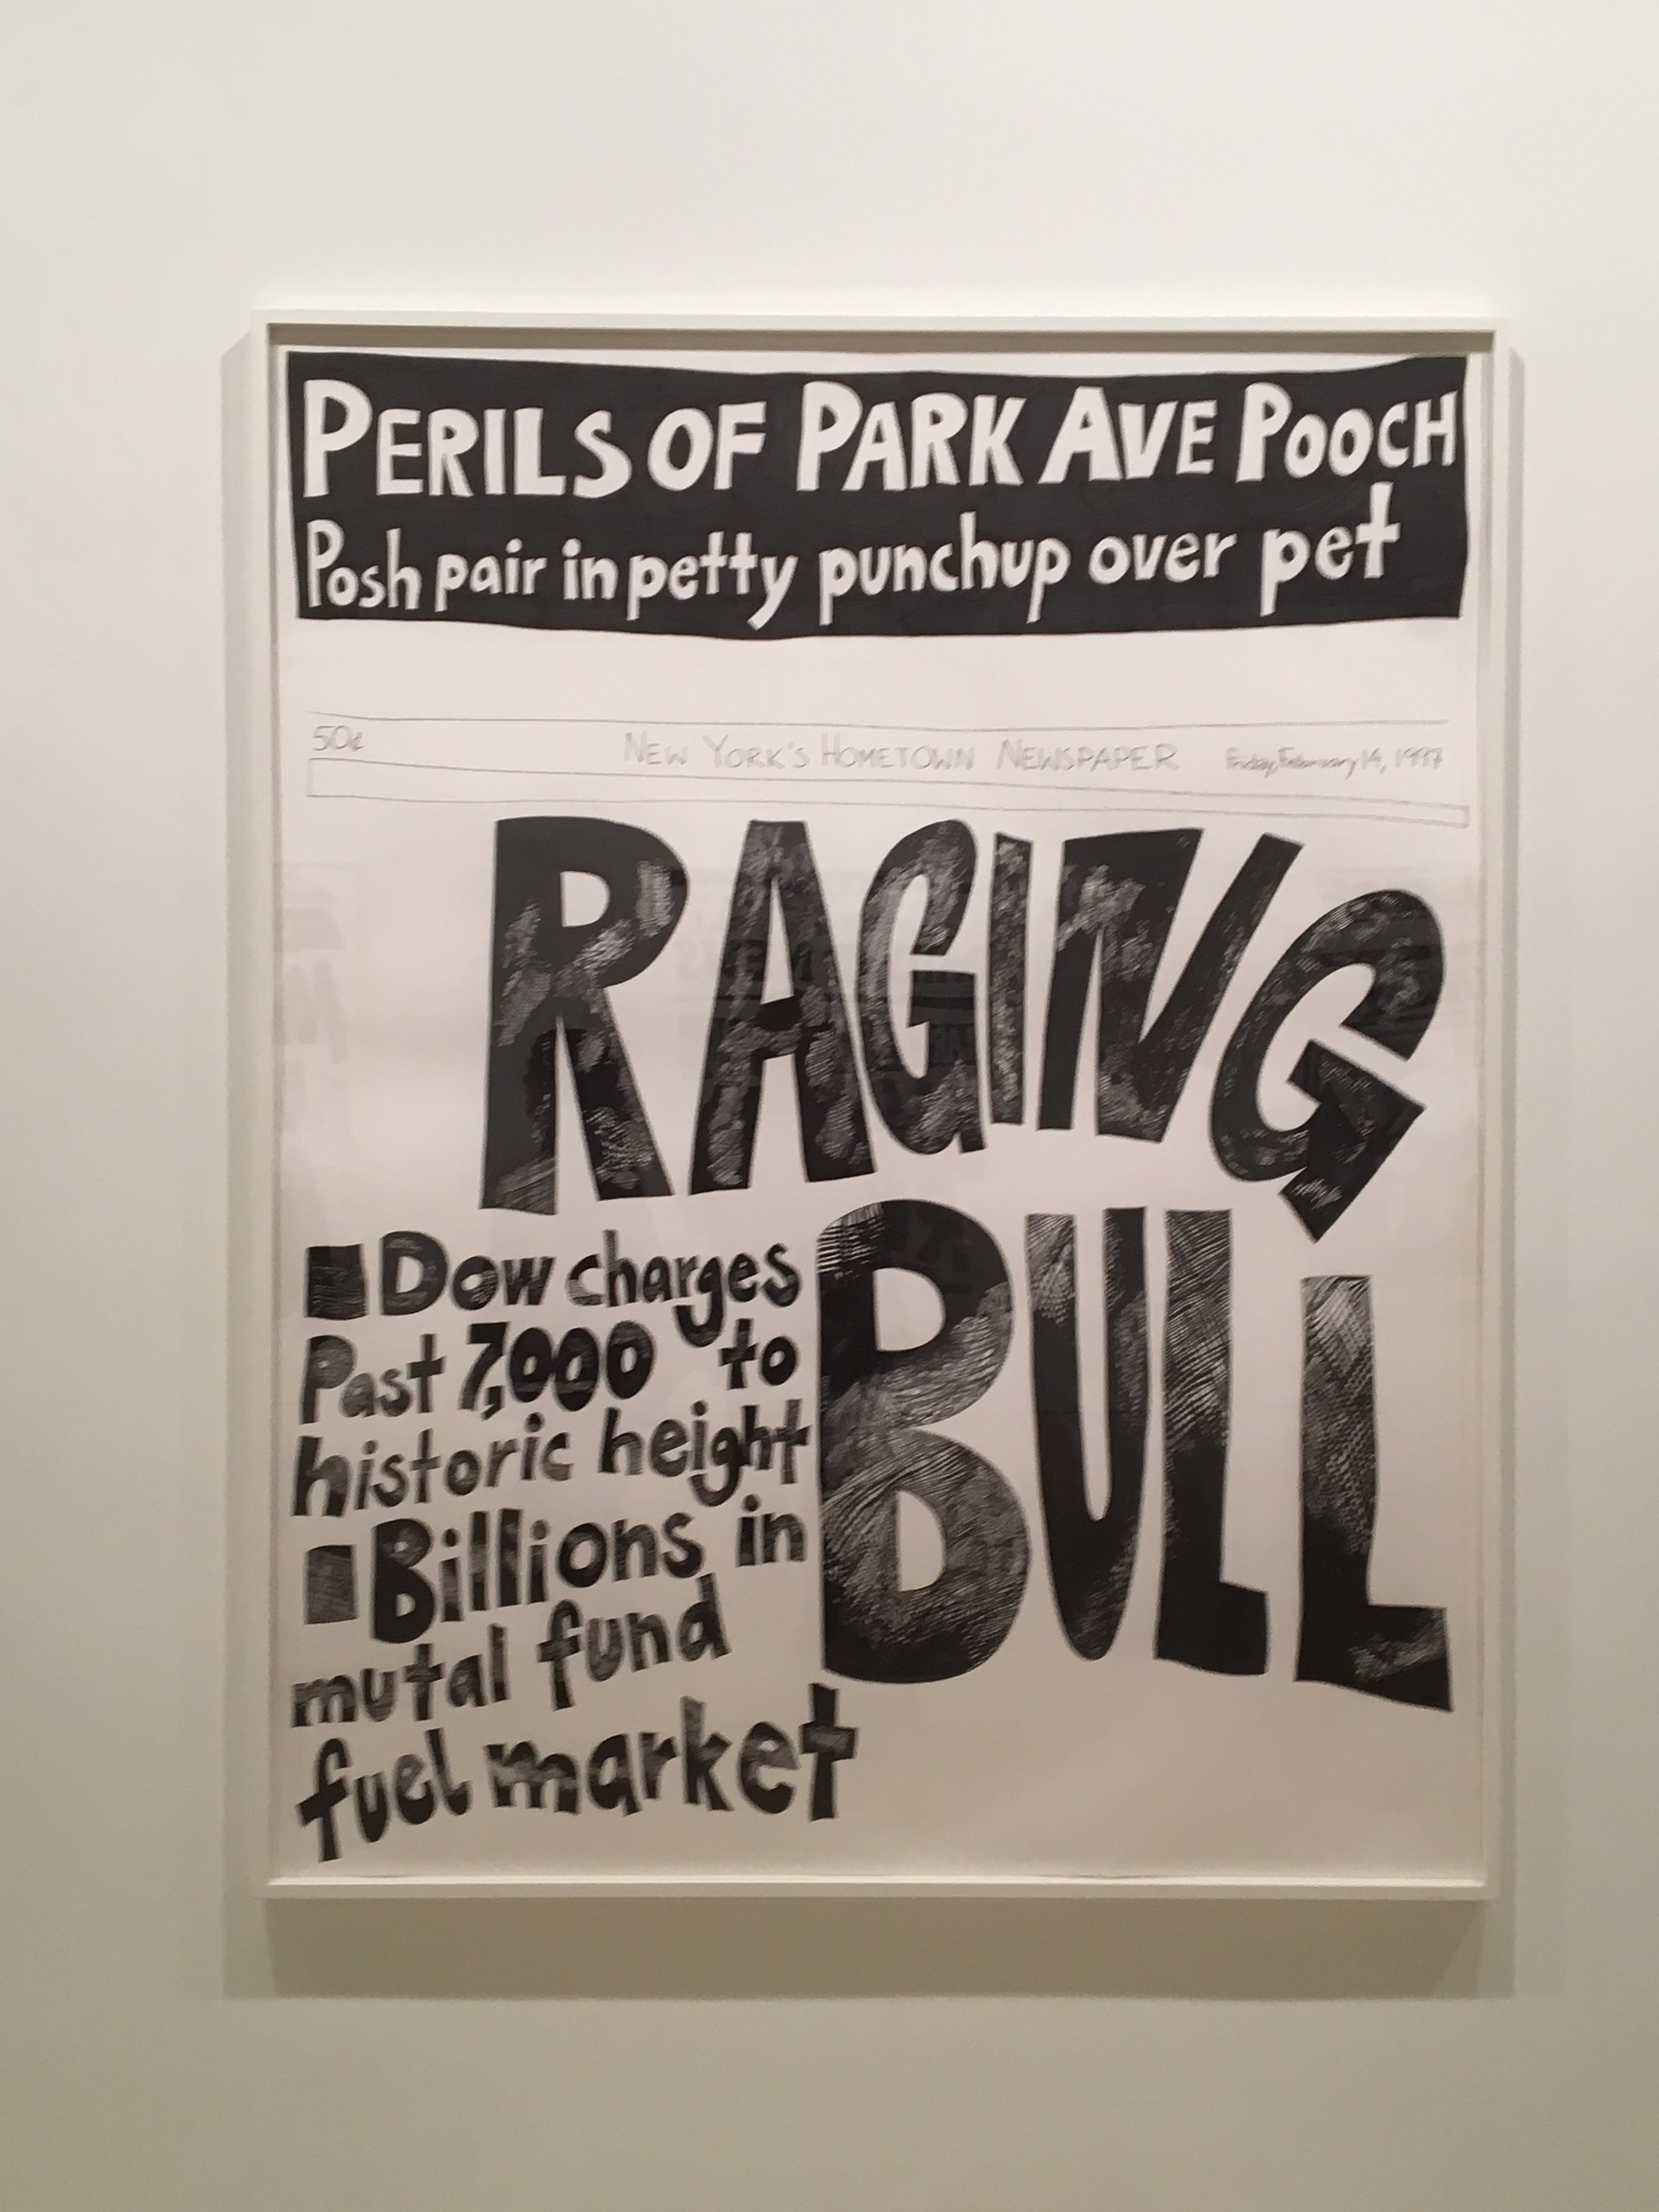 PERILS OF PARK AVE POOCH
Posh pair in petty punchup over pet
50¢ NEW YORK'S HOMETOWN NEWSPAPER Friday, February 14, 1997
RAGING
BULL
Dow charges
Past 7,000 to
historic height
Billions in
mutal fund
fuel market